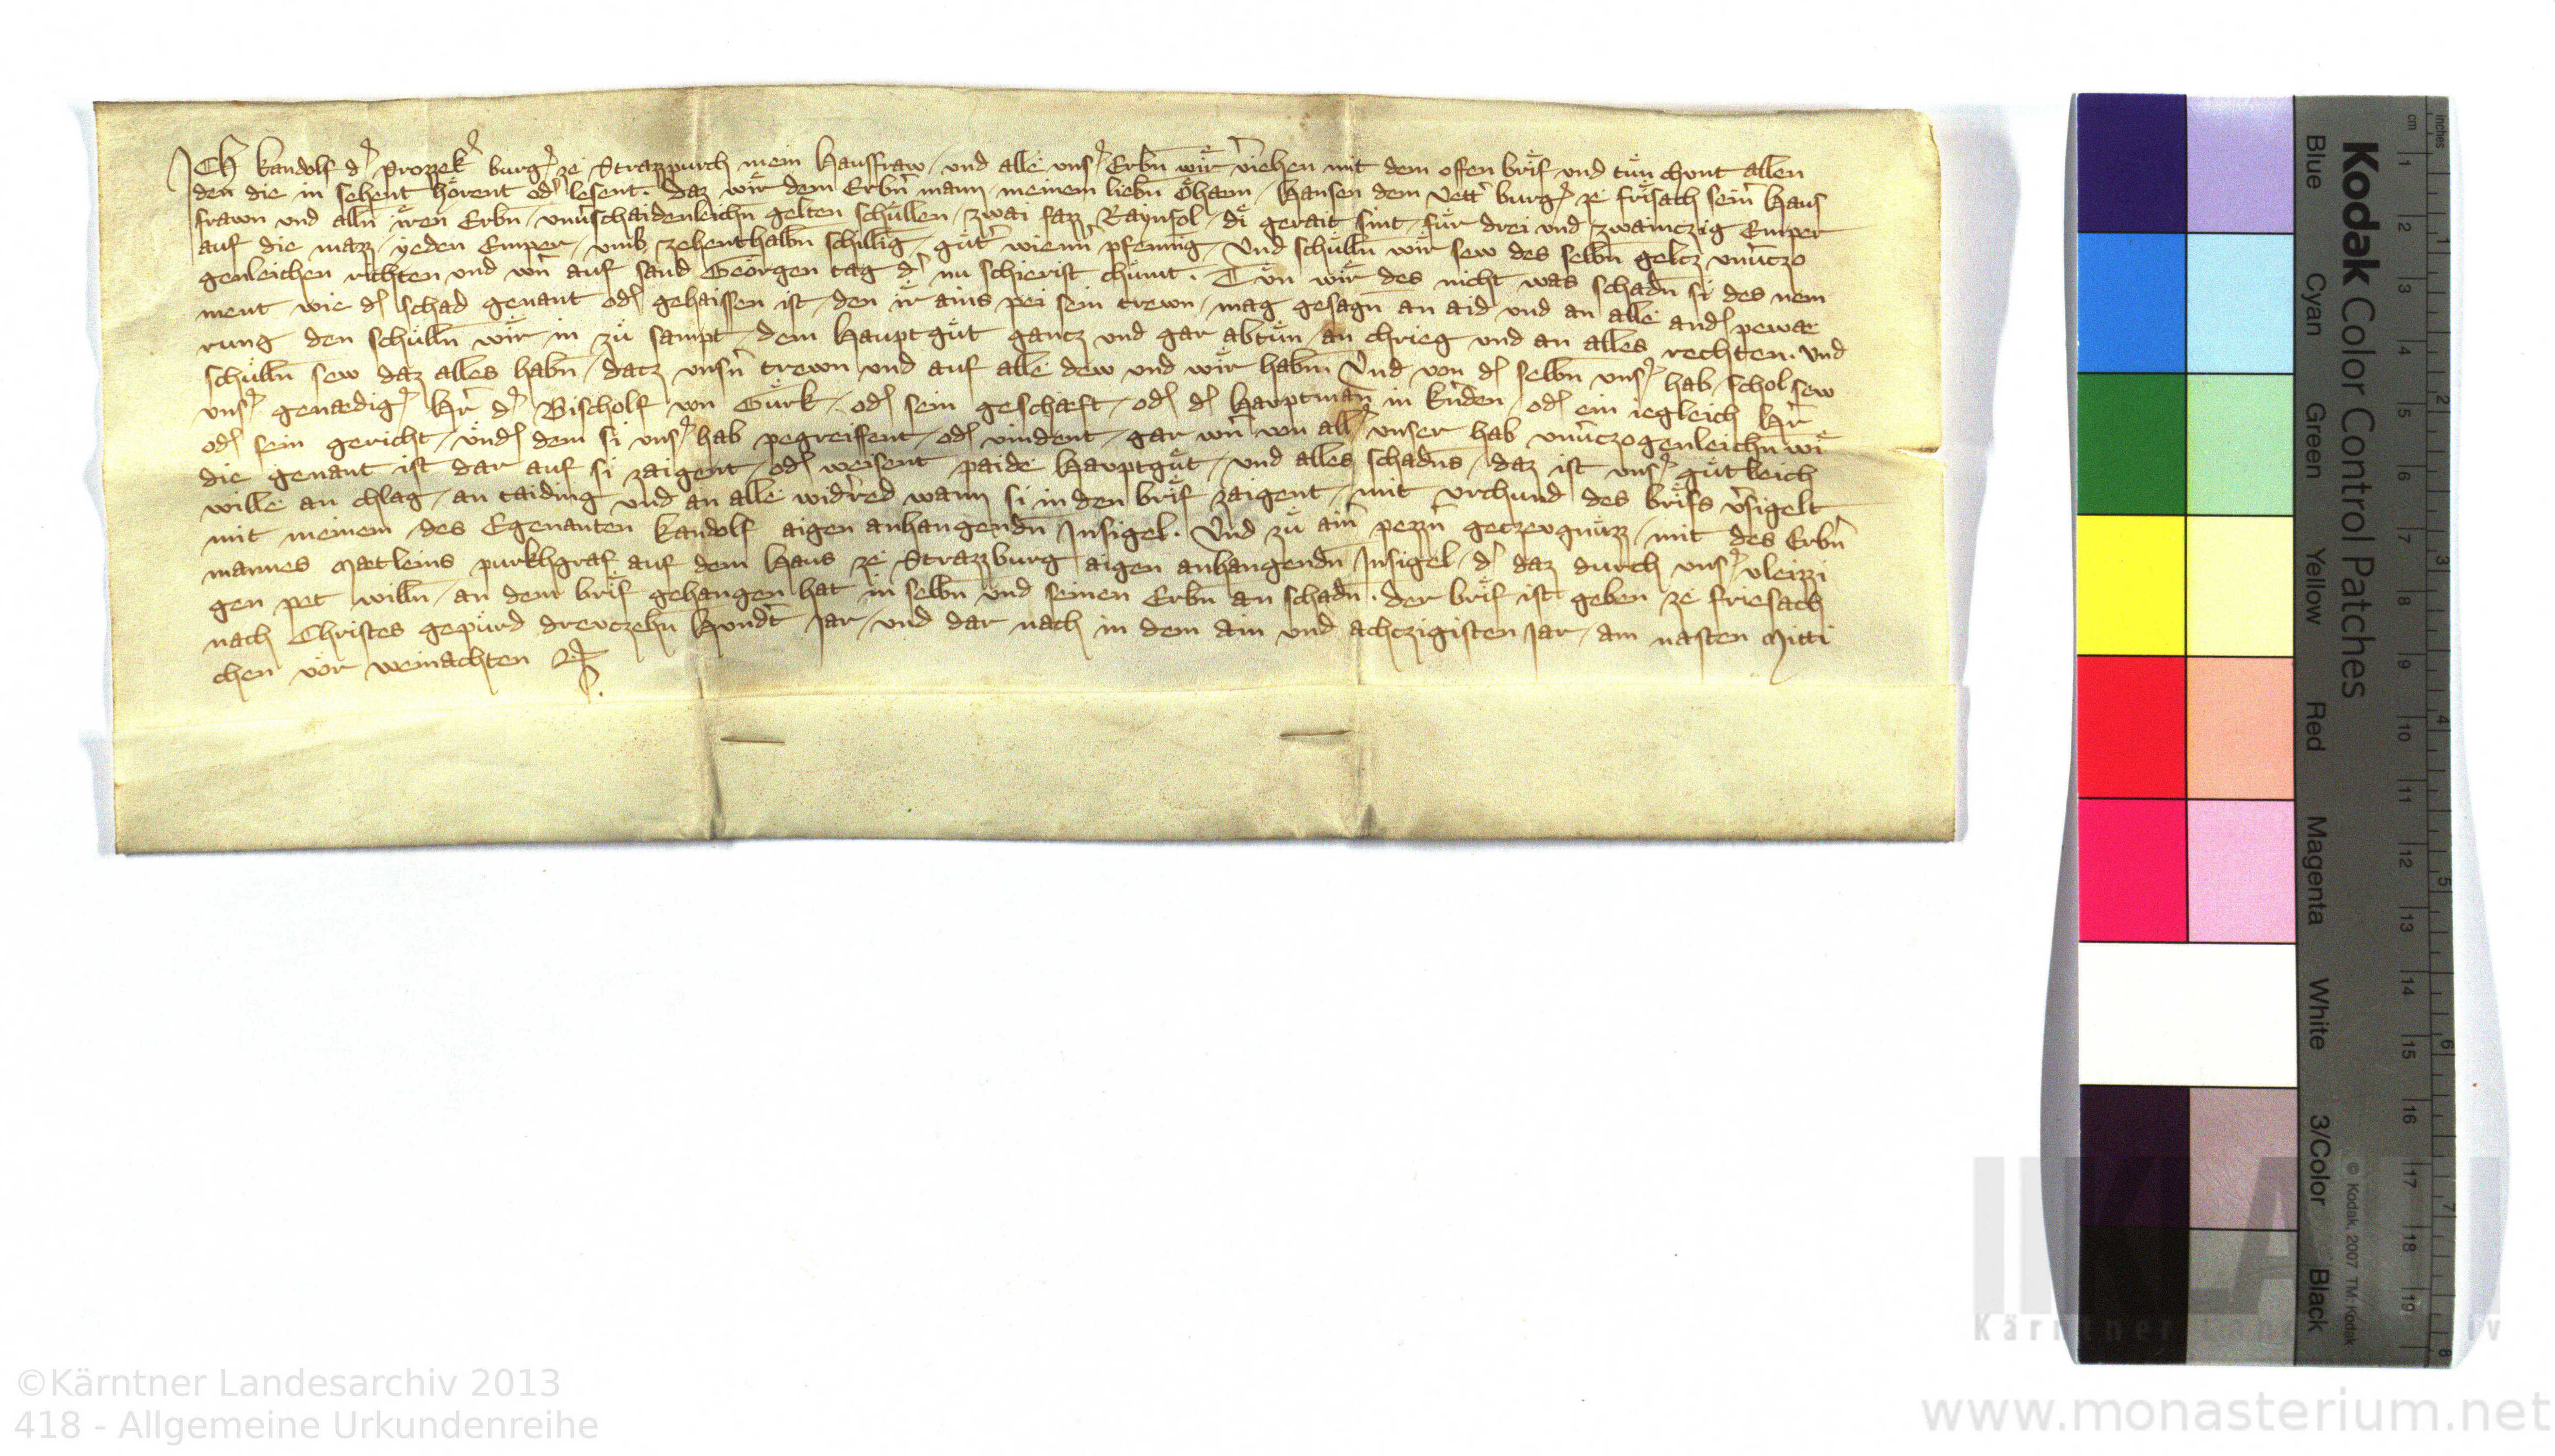 ICh kandolf d' Prozzek' burg' ze Strazzpurch mein Hausfraw und alle uns' Erbn̄ wir v'iehen mit dem offen brif und tun chunt allen
den die in sehent hörent od' lesent. daz wir dem Erbn̄ mann meinem liebn̄ öhaim Hansen dem Vett' burg' ze frisach sein' Haus
frawn und alln̄ iren Erbn̄ unu'schaidenleichn̄ gelten schullen zwai fazz Raynfol di gerait sint für drei und zwainczig Emper
auf die mazz yeden Emper umb zehenthalbn̄ schilling güt' wienn' pfenning Und schulln̄ wir sew des selbn̄ geltz unu'czo
genleichen richten und wn' auf sand Georgen tag d' nu schierist chumt. Tün wir des nicht was schadn̄ si des nem
ment wie d' schad genant od' gehaissen ist den ir ains pei sein trewn mag gesagn̄ an aid und an alle and' pewae
rung den schulln̄ wir in zü sampt dem Hauptgüt gancz und gar abtün an chrieg und an alles rechten. Und
schulln̄ sew daz alles habn̄ datz unsn' trewn und auf alle dew und wir habn̄ Und von d' selbn̄ uns' hab schol sew
uns' genaedig' H'r d' Bischolf von Gurk od' sein geschaeft od' d' Hauptman in k'nden od' ein iegleich H'r
od' sein gericht und' dem si uns' hab pegreiffent od' vindent gar wn' von all' unser hab unu'czogenleichn̄ wi
die genant ist dar auf si zaigent od' weisent paide Hauptgüt und alles schadns daz ist uns' gütleich
wille an chlag an taiding und an alle wid'red wann si in den brif zaigent mit urchund des brifs v'sigelt
mit meinem des Egenanten kandolf aigen anhangendn̄ Insigel. Und zü ain' pezzn' geczeugnüzz mit des Erbn'
mannes Matleins purkhgraf auf dem Haus ze Strazzburg aigen anhangendn̄ Insigel d' daz durch uns' vleizzi
gen pet willn̄ an dem brif gehangen hat in selbn̄ und seinen Erbn̄ an schadn̄. der brif ist geben ze friesach
nach Christes gepürd drewczehn Hund't Jar und dar nach in dem ain und achczigisten Jar am nasten Mitti
chen vor weinachten
Kodak Color Control Patches
Blue Cyan Green Yellow Red Magenta White 3/Color Black
© Kodak, 2007 TM: Kodak
cm 1 2 3 4 5 6 7 8 9 10 11 12 13 14 15 16 17 18 19
inches 1 2 3 4 5 6 7 8
Kärntner Landesarchiv
©Kärntner Landesarchiv 2013
418 - Allgemeine Urkundenreihe
www.monasterium.net